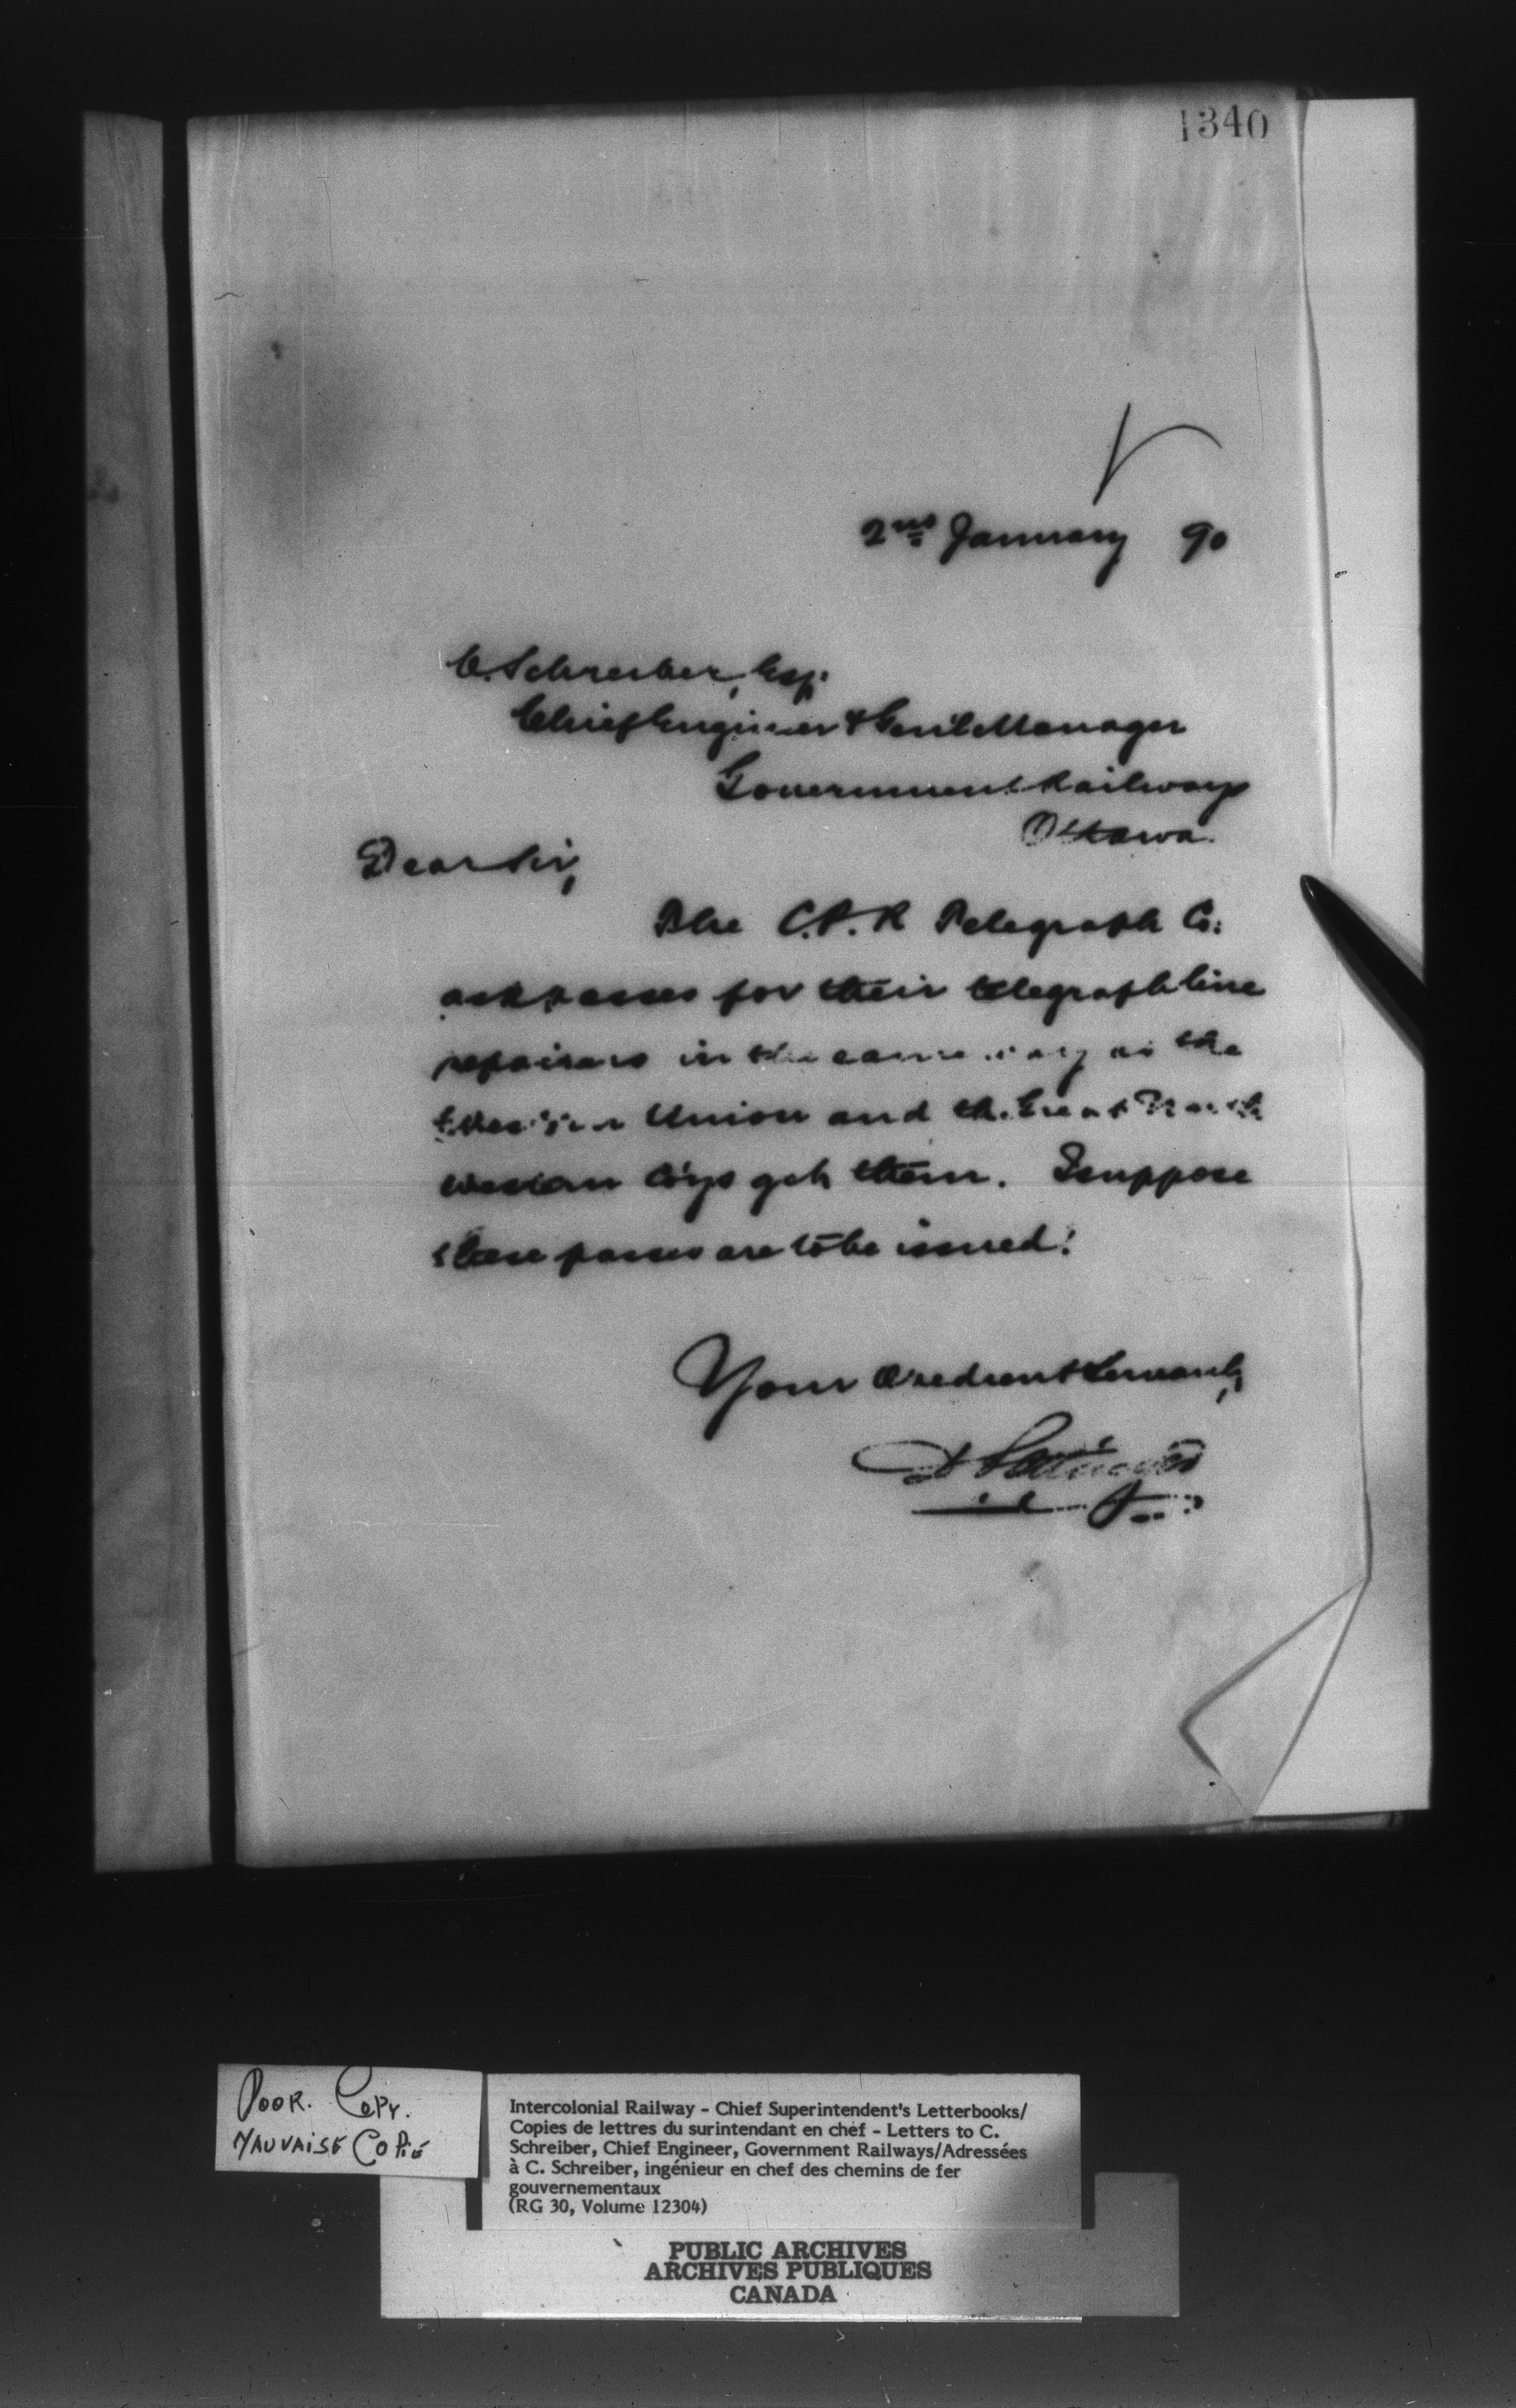 1340
2nd January 90
C. Schreiber, Esq.
Chief Engineer & Gen'l Manager
Government Railways
Ottawa.
Dear Sir,
The C.P.R Telegraph Co:
ask passes for their telegraph line
repairers in the same way as the
Western Union and the Great North
Western Co'ys get them. I suppose
these passes are to be issued?
Your Obedient Servant,
D Pottinger
POOR. COPY.
MAUVAISE COPIE
Intercolonial Railway - Chief Superintendent's Letterbooks/
Copies de lettres du surintendant en chef - Letters to C.
Schreiber, Chief Engineer, Government Railways/Adressées
à C. Schreiber, ingénieur en chef des chemins de fer
gouvernementaux
(RG 30, Volume 12304)
PUBLIC ARCHIVES
ARCHIVES PUBLIQUES
CANADA